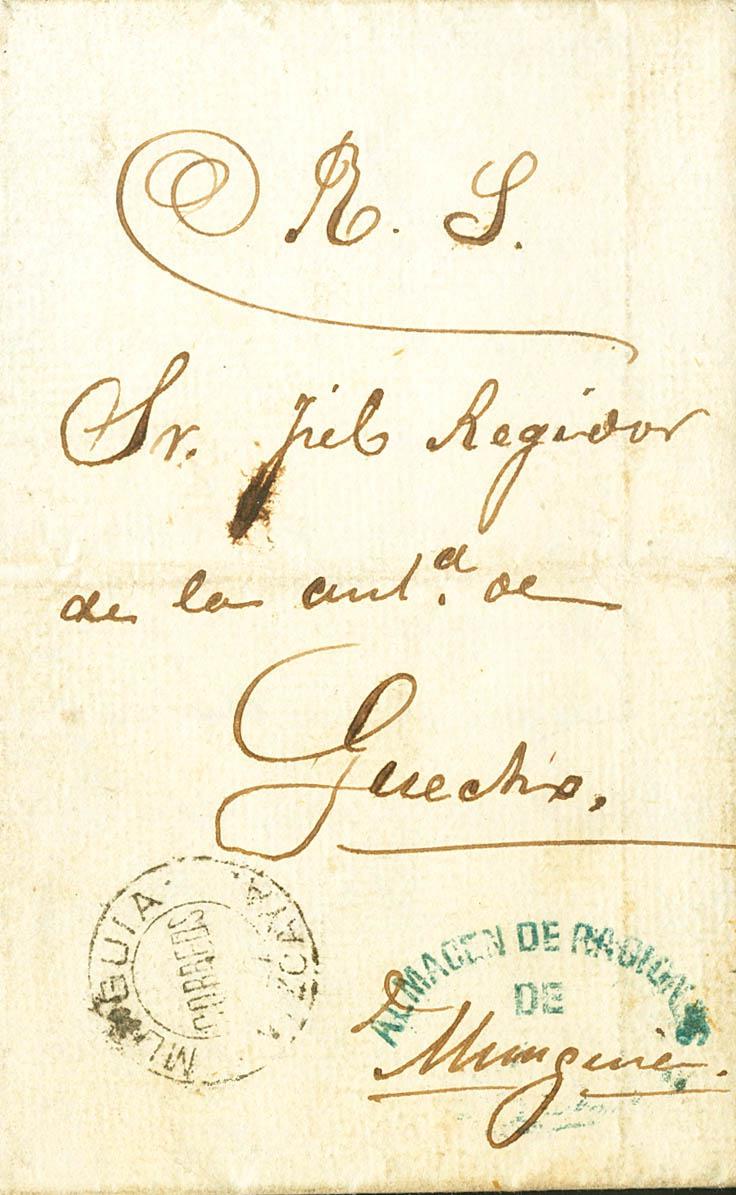 R. S.
Sr. Fiel Regidor
de la ant.ª de
Guecho.
MUNGUIA. VIZCAYA.
CORREOS
ALMACEN DE RACIONES
DE
Munguia.